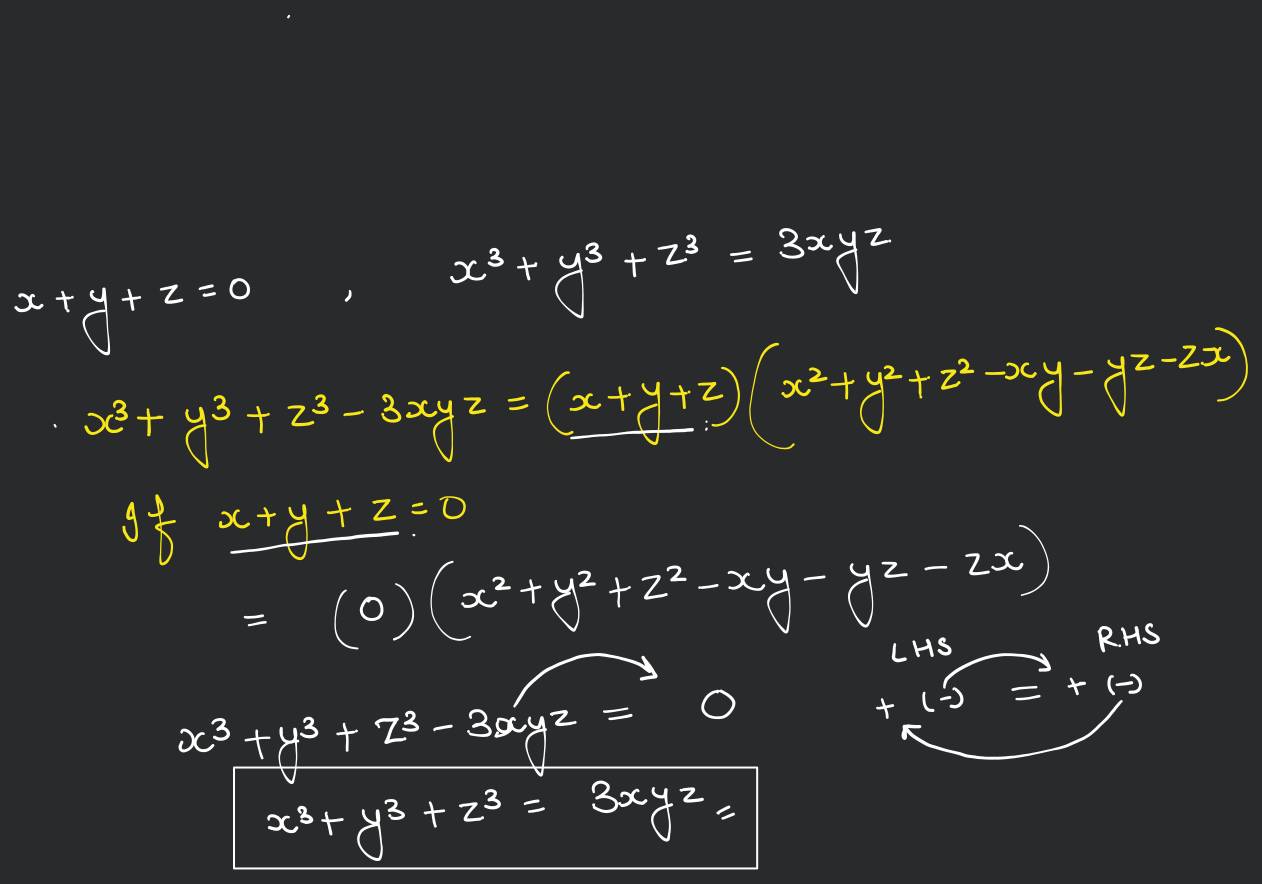 x + y + z = 0 , x³ + y³ + z³ = 3xyz
x³ + y³ + z³ - 3xyz = (x+y+z) (x² + y² + z² - xy - yz - zx)
If x + y + z = 0
= (0) (x² + y² + z² - xy - yz - zx)
LHS RHS
+ (-) = + (-)
x³ + y³ + z³ - 3xyz = 0
x³ + y³ + z³ = 3xyz =